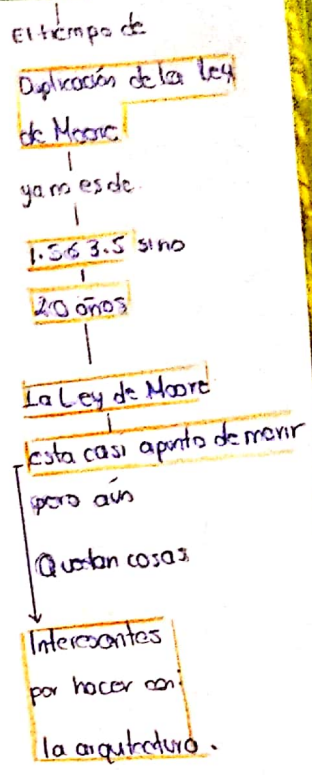 El tiempo de
Duplicación de la ley
de Moore
ya no es de
1.5 ó 3.5 sino
20 años
La Ley de Moore
esta casi apunto de morir
pero aún
Quedan cosas
Interesantes
por hacer con
la arquitectura.